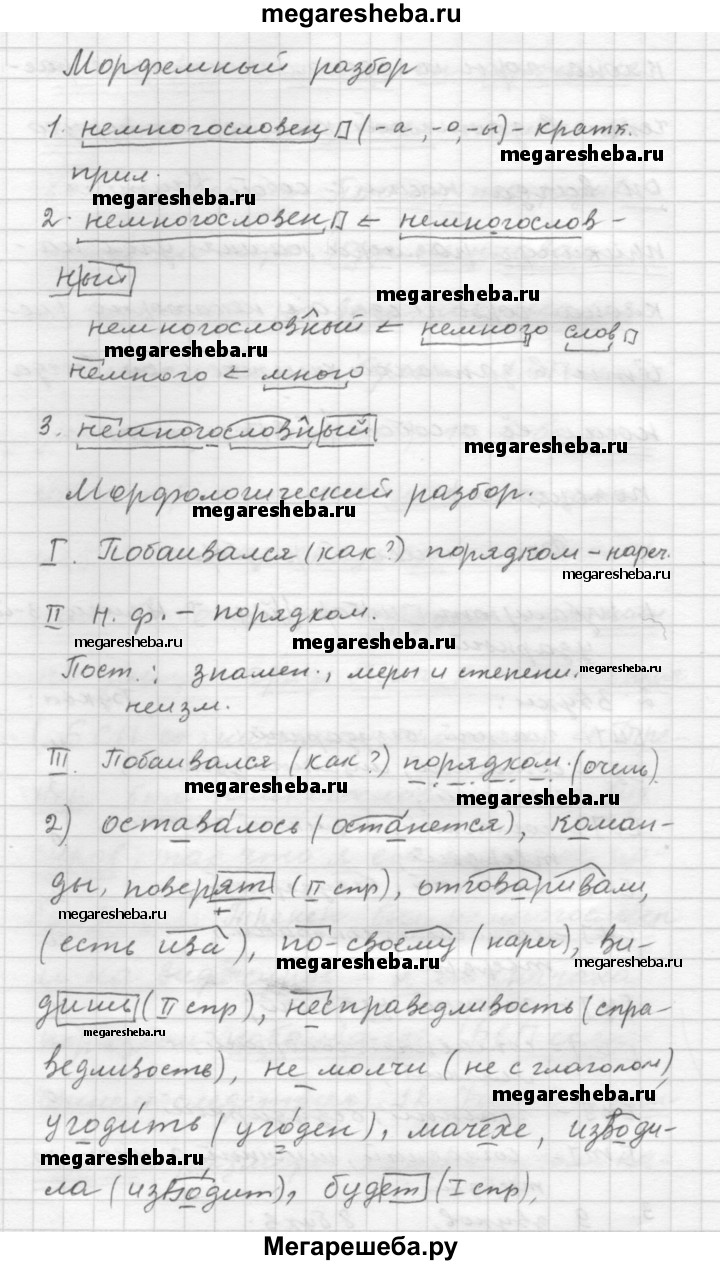 megaresheba.ru
Морфемный разбор
1. немногословен (-а, -о, -ы) - кратк.
megaresheba.ru
прил.
megaresheba.ru
2. немногословен ← немногослов-
ный
megaresheba.ru
немногословный ← немного слов
megaresheba.ru
немного ← много
3. немногословный
megaresheba.ru
Морфологический разбор.
megaresheba.ru
I. Побаивался (как?) порядком - нареч.
megaresheba.ru
II н. ф. - порядком.
megaresheba.ru megaresheba.ru
Пост.: знамен., меры и степени.
megaresheba.ru
неизм.
III. Побаивался (как?) порядком. (очень).
megaresheba.ru megaresheba.ru
2) оставалось (останется), коман-
ды, поверят (II спр), отговаривали,
megaresheba.ru
(есть ива), по-своему (нареч), ви-
megaresheba.ru megaresheba.ru
дишь (II спр), несправедливость (спра-
megaresheba.ru
ведливость), не молчи (не с глаголом)
megaresheba.ru
угодить (угоден), мачехе, изводи-
megaresheba.ru
ла (изводит), будет (I спр),
Мегарешеба.ру